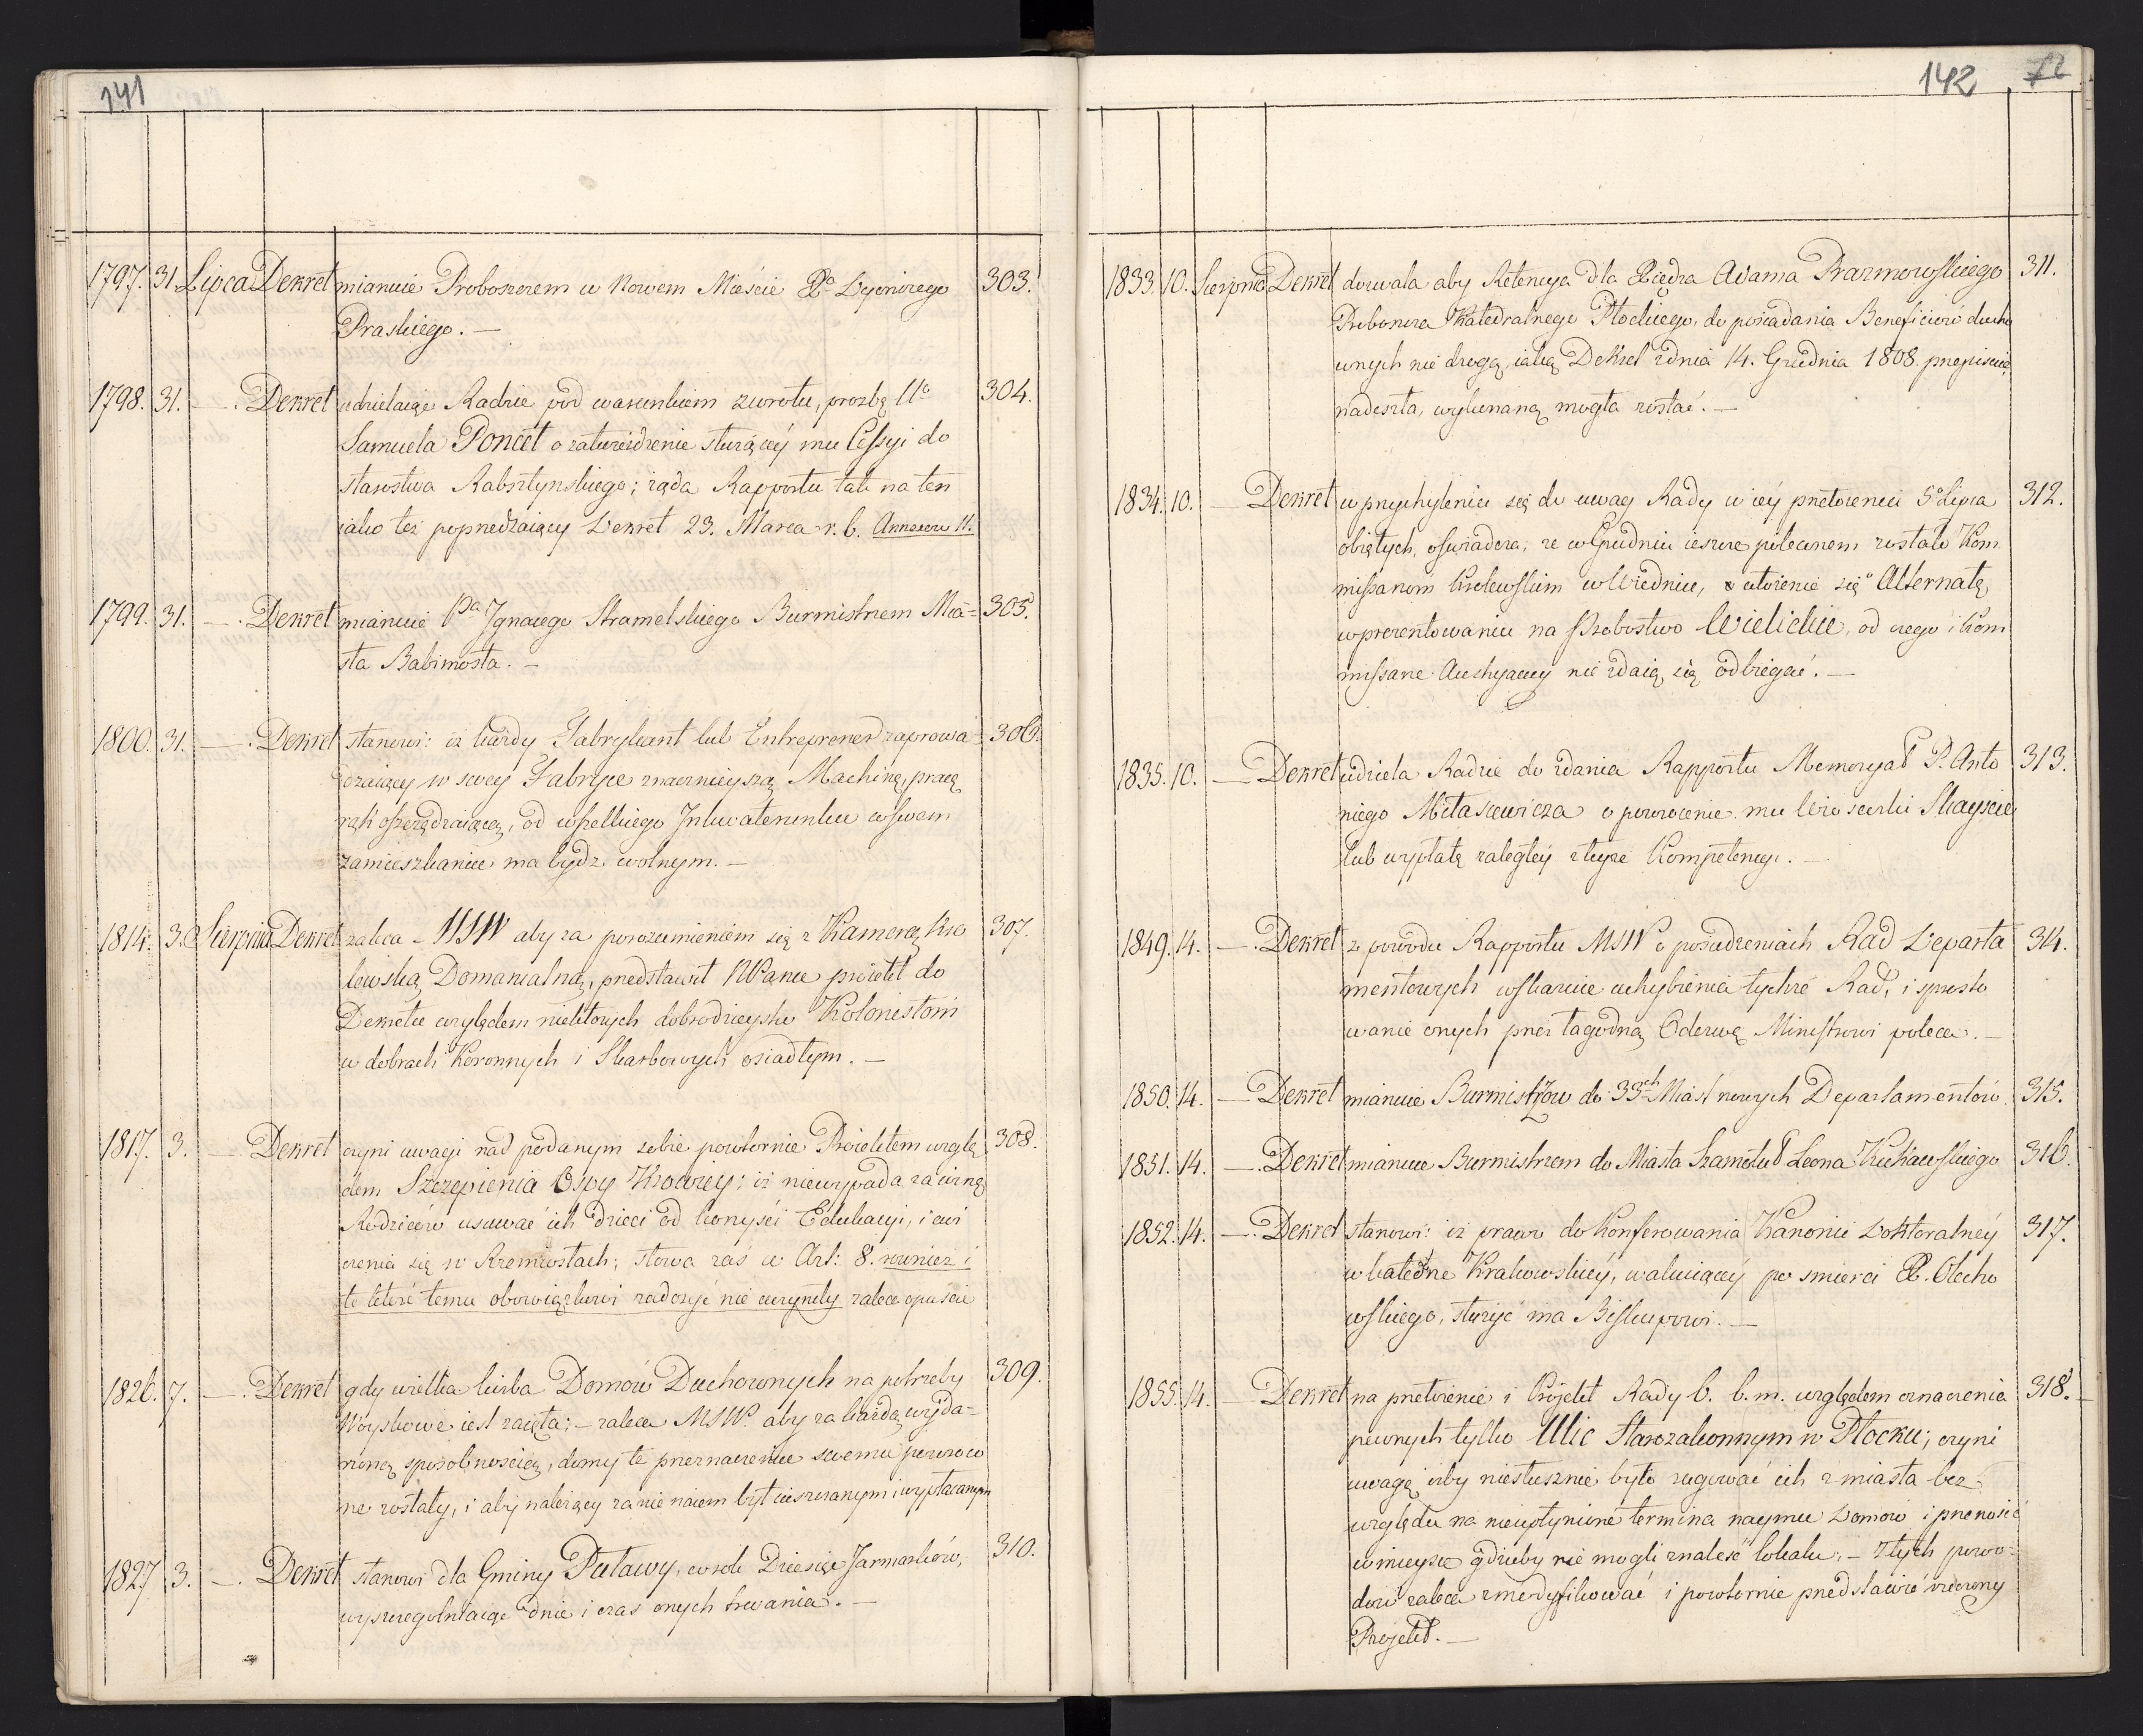 141
1797. 31. Lipca Dekret mianuie Proboszczem w Nowem Mieście Xa Wycinirego 303.
Praskiego. —
1798. 31. — . Dekret udzielaiąc Radzie pod warunkiem zwrotu, proźbę Ua 304.
Samuela Poncet o zatwierdzenie służącéy mu Cessyi do
starostwa Rabsztynskiego; żąda Rapportu tak na ten
iako też poprzedzaiący Dekret 23. Marca r. b. Annexow 11.
1799. 31. — . Dekret mianuie Pa Jgnacego Stramelskiego Burmistrzem Mia= 305.
sta Babimosta. —
1800. 31. — . Dekret stanowi: iż każdy Fabrykant lub Entreprener zaprowa= 306.
dzaiący w swey Fabryce znacznieyszą Machinę, pracę
rąk oszczędzaiącą, od wszelkiego Jnkwaterunku w swem
zamieszkaniu ma bydź wolnym. —
1814. 3. Sierpnia Dekret zaleca – MSW aby za porozumieniem się z Kamerą Kró 307.
lewską Domanialną, przedstawił NPanu proiekt do
Dekretu względem niektorych dobrodzieystw Kolonistom
w dobrach Koronnych i Skarbowych osiadłym. —
1817. 3. — Dekret czyni uwagi nad podanym sobie powtornie Proiektem wzglę 308.
dem Szczepienia Ospy Krowiey; iż niewypada za winę
Rodziców usuwać ich dzieci od korzyści Edukacyi, i ćwi
czenia się w Rzemiosłach; słowa zaś w Art: 8. rownież i
te które temu obowiązkowi zadosyć nie uczyniły zaleca opuścić
1826. 7. — . Dekret gdy wielka liczba Domów Duchownych na potrzeby 309.
Woyskowe iest zaięta; – zaleca MSW. aby za każdą wyda=
rzoną sposobnością, domy te przeznaczeniu swemu powroco
ne zostały, i aby należący za nie naiem był uiszczanym i wypłacanym
1827 3. — . Dekret stanowi dla Gminy Puławy, w rok Dziesięć Jarmarków, 310.
wyszczegolniaiąc dnie i czas onych trwania. —
142
1833. 10. Sierpnia Dekret dozwala aby Retencya dla Xiędza Adama Prazmowskiego 311.
Proboszcza Katedralnego Płockiego, do posiadania Beneficiów ducho
wnych nie drogą, iaką Dekret z dnia 14. Grudnia 1808. przepisuie,
nadeszła, wykonaną mogła zostać. —
1834. 10. — Dekret w przychyleniu się do uwag Rady w iéy przełożeniu 5o Lipca 312.
obiętych, oświadcza, że w Grudniu ieszcze poleconem zostało Kom
missarzom Krolewskim w Wiedniu, o ułożenie się "o Alternatę,
w prezentowaniu na Probostwo Wielickie, od czego i Kom
missarze Austryaccy nie zdaią się odbiegać. —
1835. 10. — Dekret udziela Radzie do zdania Rapportu Memoryał P. Anto 313.
niego Mitascewicza o powrocenie mu Wioseczki Skayscie
lub wypłatę zaległey z tuyże Kompetencyi. —
1849. 14. — . Dekret z powodu Rapportu MSW o posiedzeniach Rad Departa 314.
mentowych wskazuie uchybienia tychże Rad, i sprosto
wanie onych przez łagodną Odezwę Ministrowi poleca. —
1850. 14. — Dekret mianuie Burmistrzow do 33ch Miast nowych Departamentów. 315.
1851. 14. — . Dekret mianuie Burmistrzem do Miasta Szamotuł Leona Kukawskiego 316.
1852. 14. — . Dekret stanowi: iż prawo do Konferowania Kanonii Doktoralnéy 317.
w katedrze Krakowskiéy, wakuiącéy po smierci X. Olecho
wskiego, służyć ma Biskupowi. —
1855. 14. — Dekret na przełożenie i Projekt Rady b. b. m. względem oznaczenia 318.
pewnych tylko Ulic Starozakonnym w Płocku; czyni
uwagę iżby niesłusznie było rugować ich z miasta bez
względu na nieupłynione termina naymu Domów i przenosić
w mieysce gdzieby nie mogli znaleść lokalu. – z tych powo=
dów zaleca zmodyfikować i powtornie przedstawić rzeczony
Projekt. —